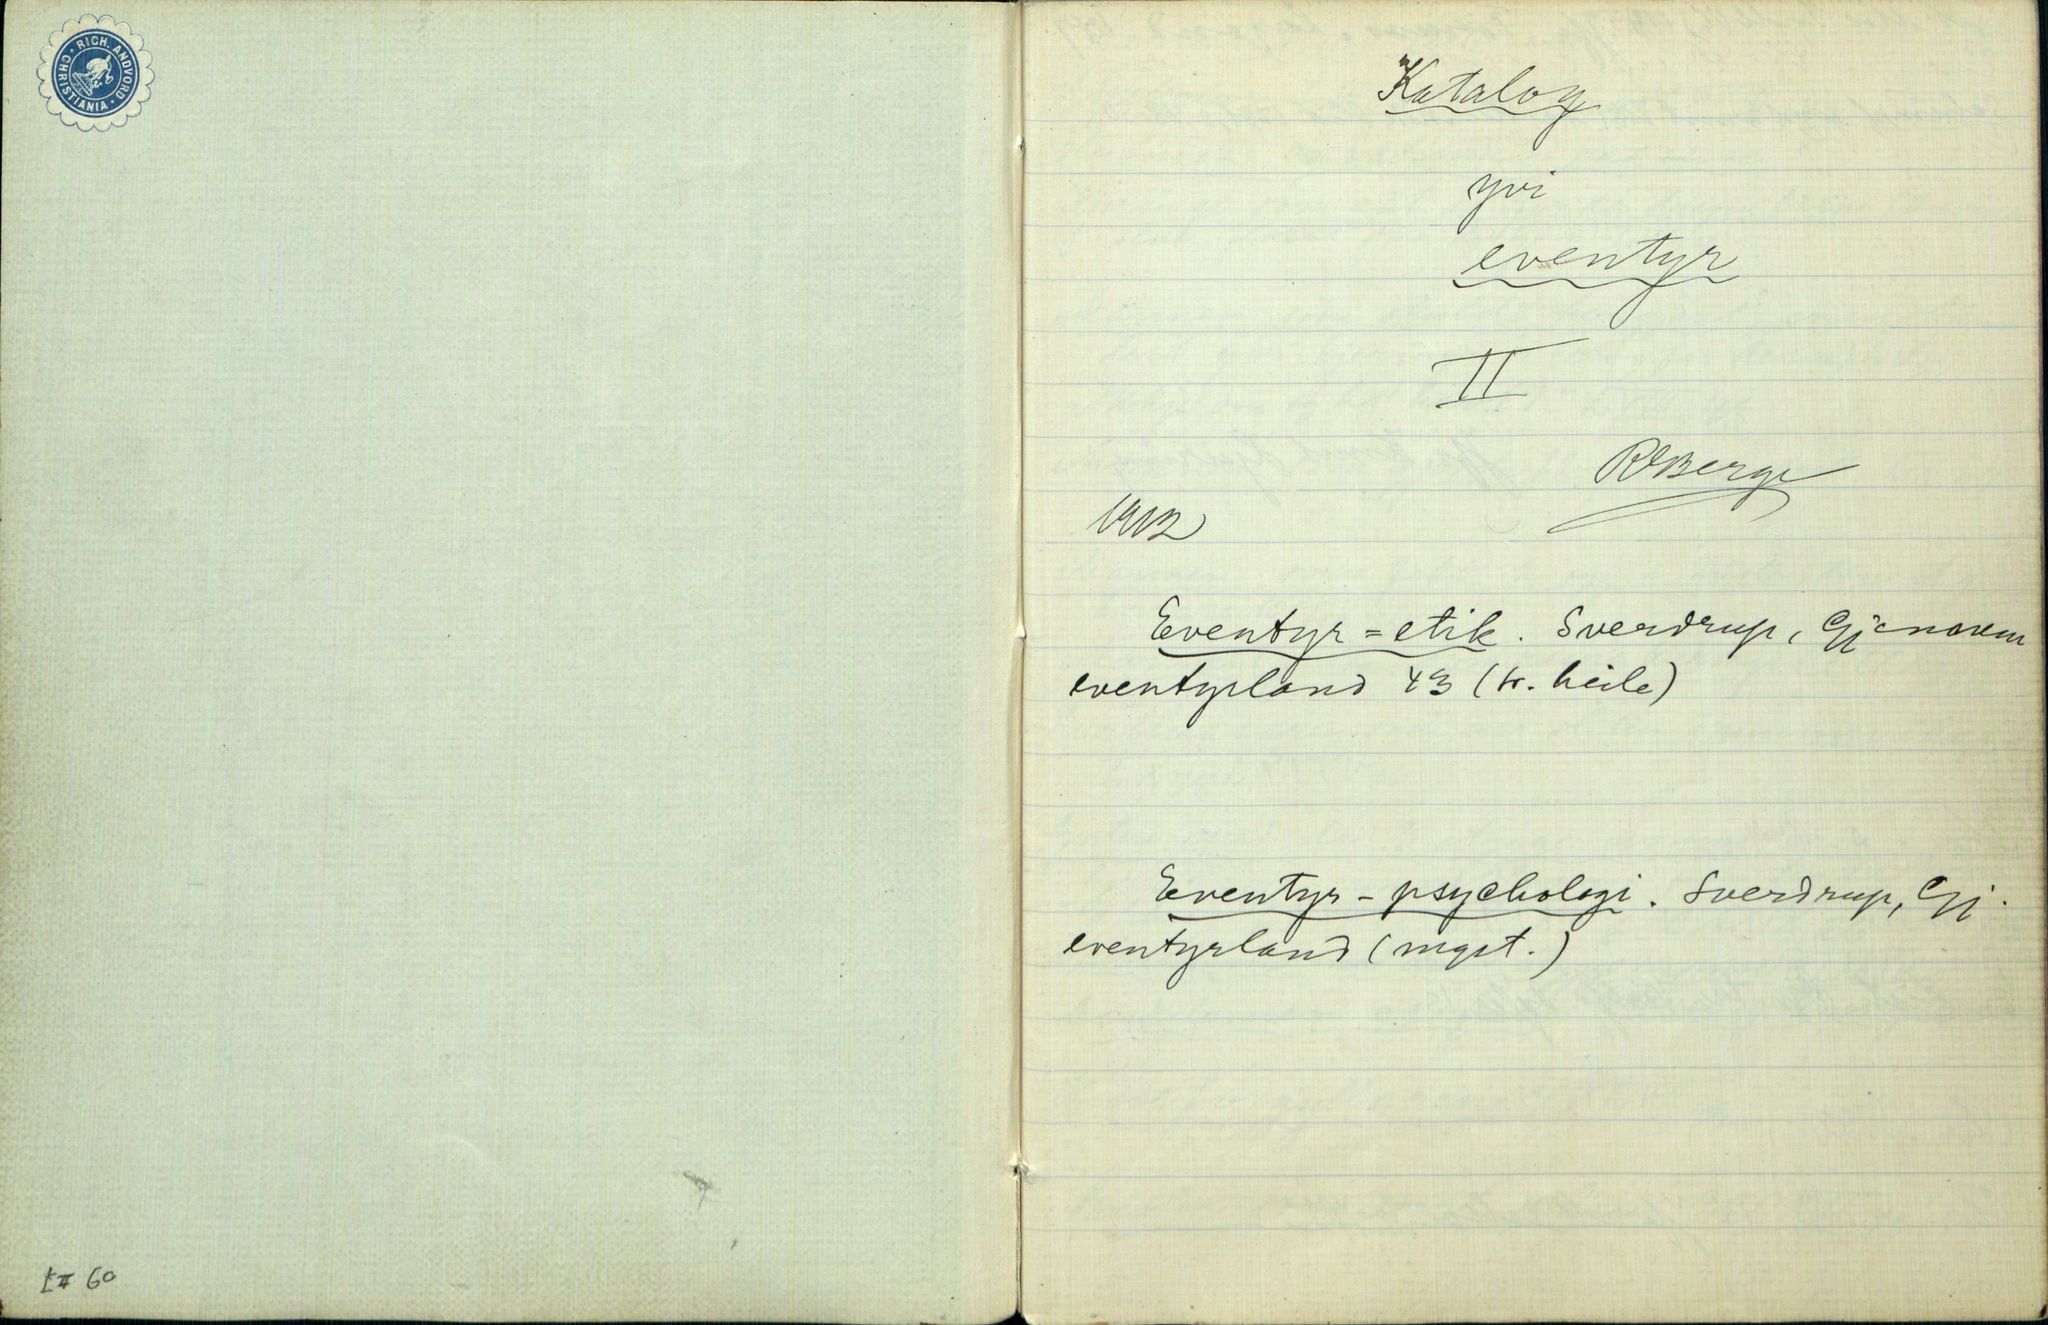 RICH. ANDVORD
CHRISTIANIA
Katalog
yvi
eventyr
II
RBerge
1912
Eventyr=etik. Sverdrup, Gjenem
eventyrland 43 (tr. heile)
Eventyr-psychologi. Sverdrup, Gj.
eventyrland (mgst.)
60